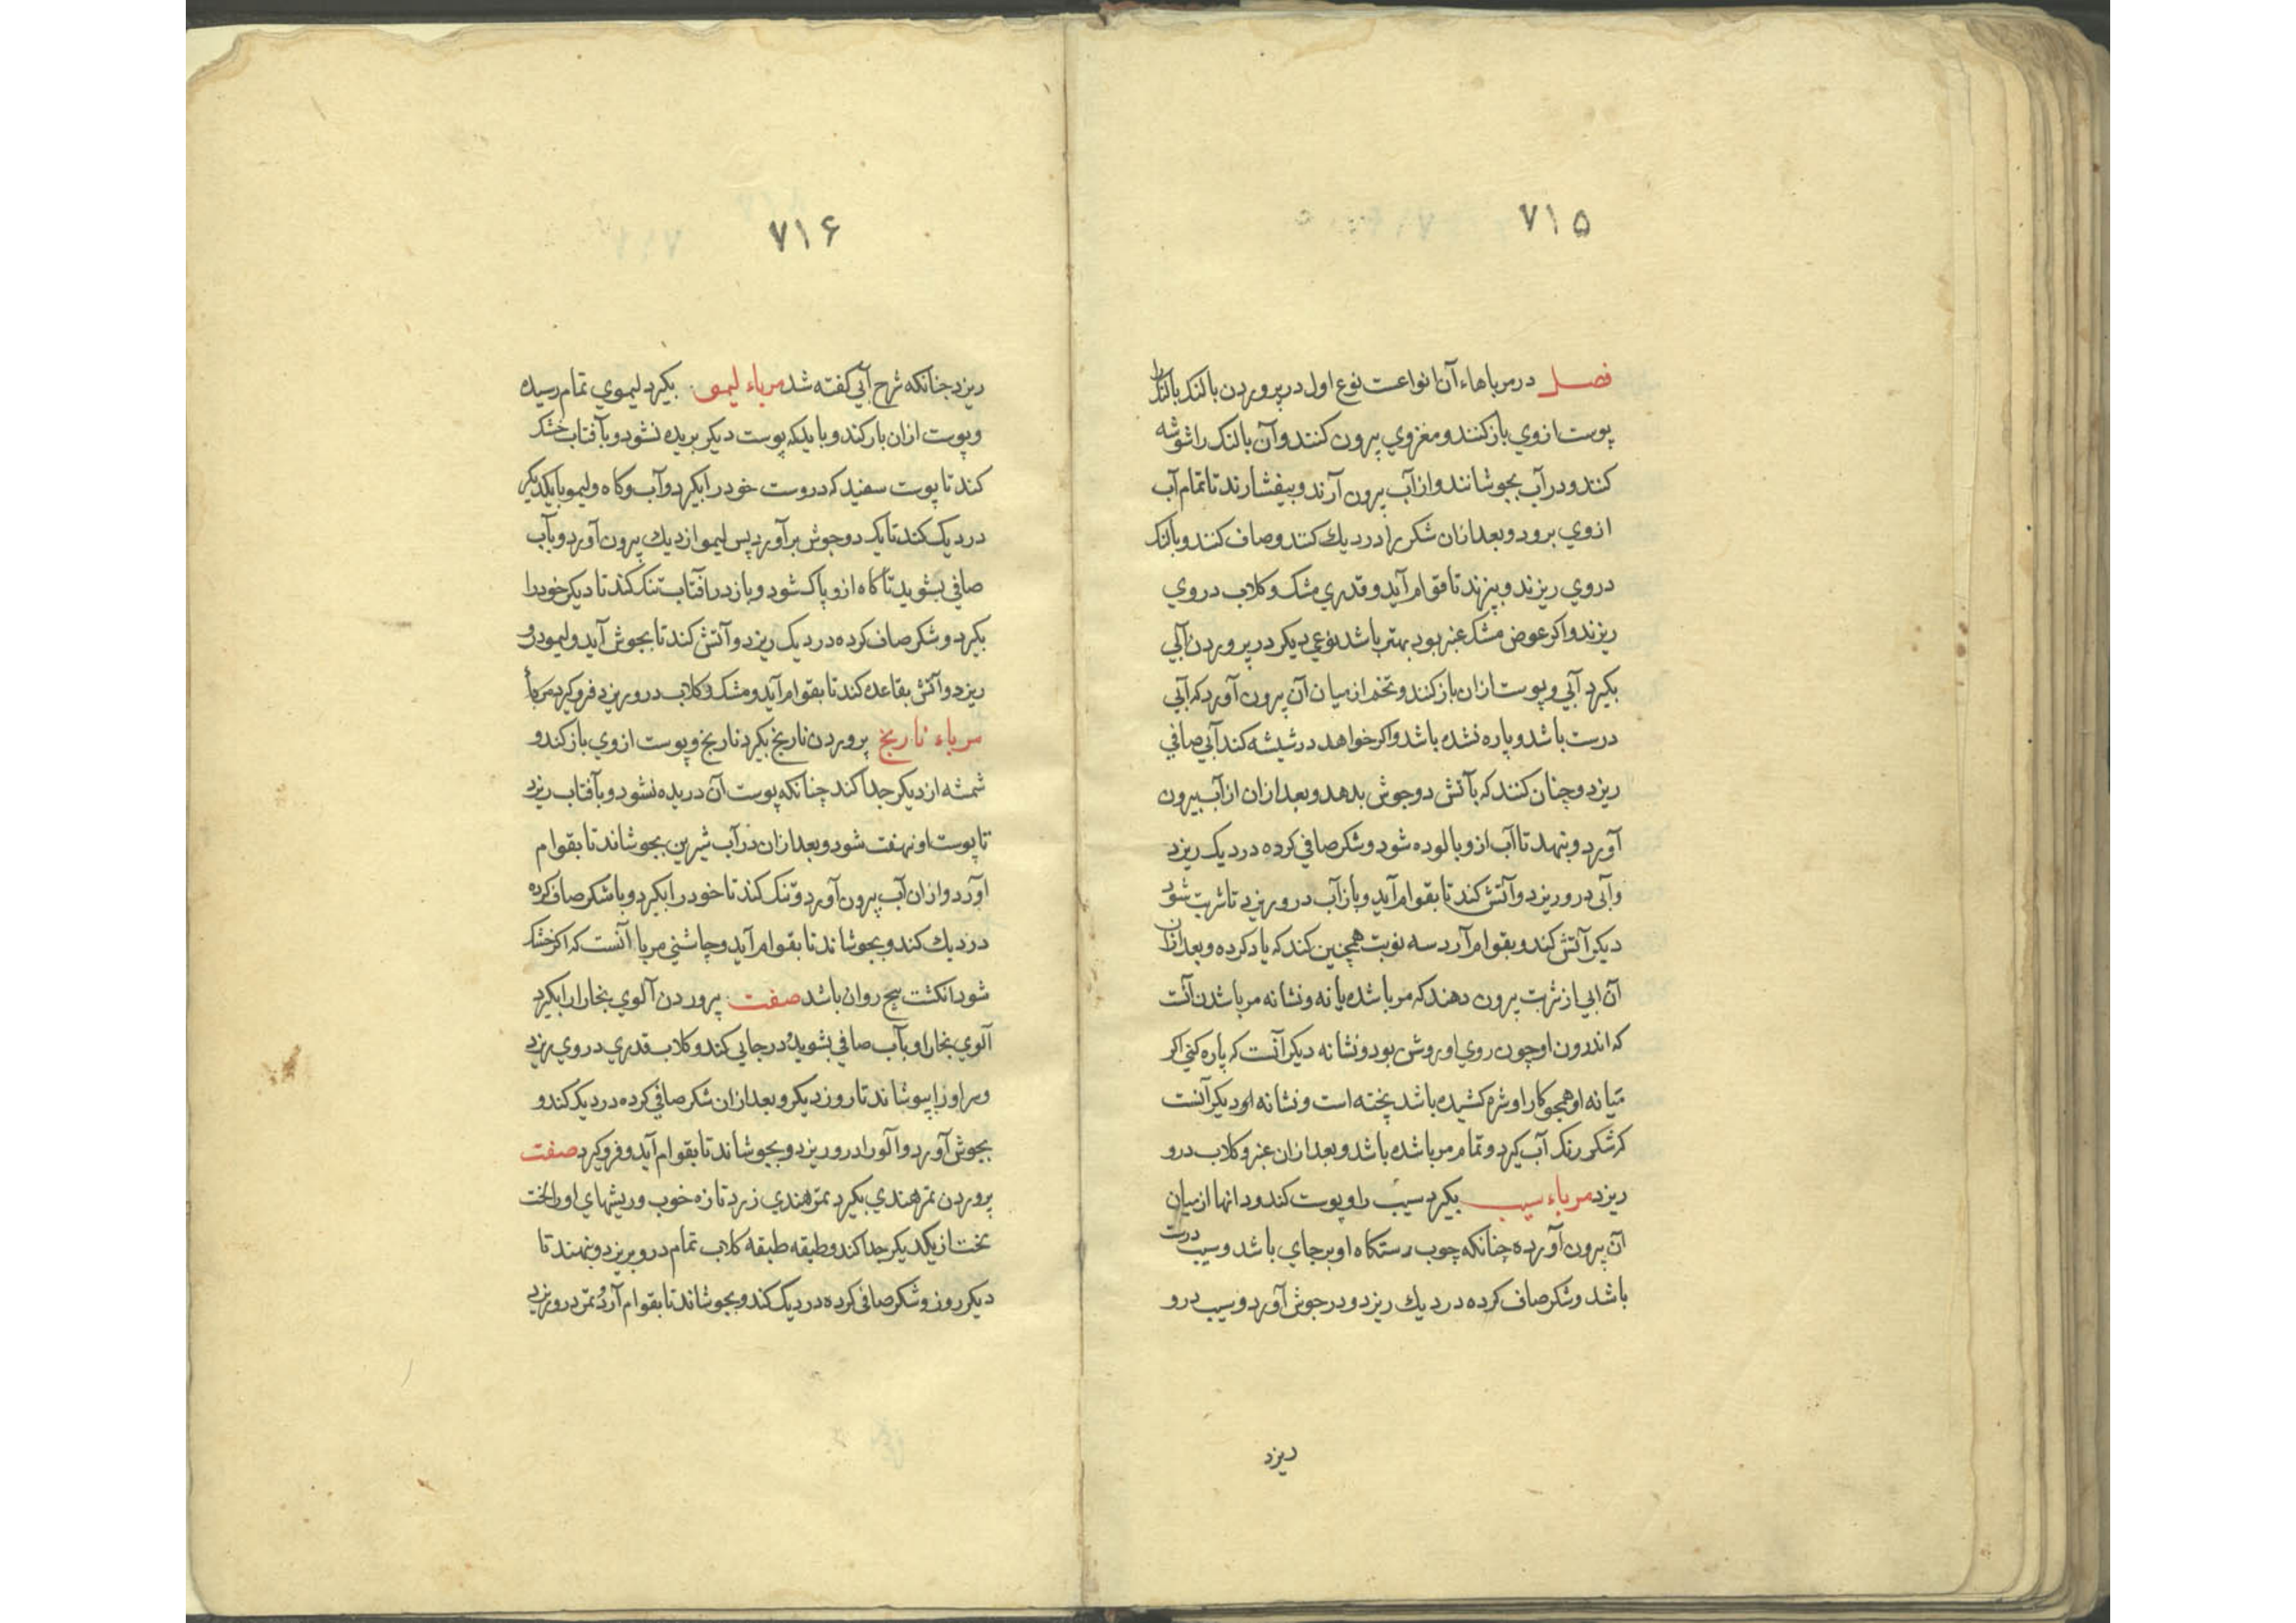 ۷۱۵
فصل درمرباهاء آن انواعست نوع اول درپروردن بالنک بالنک را
پوست ازوي بازکنند و مغزوي بیرون کنند و آن بالنک را شوشه
کنند و درآب بجوشانند و ازآب بیرون آرند و بیفشارند تا تمام آب
ازوي برود و بعدازان شکر را دردیك کنند و صاف کنند و بالنک
دروي ریزند و بپزند تا قوام آید و قدري مشک و کلاب دروي
ریزند و اکر عوض مشک عنبر بود بهتر باشد نوعي دیکر درپروردن آبي
بکیرد آبي و پوست ازان بازکند و تخم ازمیان آن بیرون آورد که آبي
درست باشد و پاره نشده باشد و اکر خواهد درشیشه کند آبي صافي
ریزد و چنان کنند که بآتش دوجوش بدهد و بعدازان ازآب بیرون
آورد و بنهد تا آب ازو پالوده شود و شکر صافي کرده دردیک ریزد
وآبی درو ریزد و آتش کند تا بقوام آید و بازآب درو ریزد تا شربت شود
دیکر آتش کند و بقوام آرد سه نوبت همچنین کند که یاد کرده و بعدازان
آن ابي ازشربت بیرون دهند که مربا شده یا نه و نشانه مربا شدن آنست
که اندرون او چون روي او روشن بود و نشانه دیکر آنست که پاره کني اکر
میانه او همچو کار او شرم کشیده باشد پخته است و نشانه او دیکر آنست
که شکر رنک آب کیرد و تمام مربا شده باشد و بعدازان عنبر و کلاب درو
ریزد مرباء سیب بکیرد سیب را و پوست کند و دانها ازمیان
آن بیرون آورده چنانکه چوب رستکاه او برجاي باشد و سیب درست
باشد و شکر صاف کرده دردیك ریزد و درجوش آورد و سیب درو
ریزد
۷۱۶
ریزد چنانکه شرح آبي کفته شد مرباء لیمو بکیرد لیموي تمام رسیده
و پوست ازان بازکند و باید که پوست دیکر بریده نشود و بآفتاب خشک
کند تا پوست سفید که دروست خود را بکیرد و آب و کاه و لیمو با یکدیکر
دردیک کند تا یک دوجوش برآورد پس لیمو ازدیك بیرون آورد و بآب
صافي بشوید تا کاه ازو پاک شود و باز درآفتاب تنک کند تا دیکر خود را
بکیرد و شکر صاف کرده دردیک ریزد و آتش کند تا بجوش آید و لیمو درو
ریزد و آتش بقاعده کند تا بقوام آید و مشک و کلاب درو ریزد فروکیرد
مرباء نارنج پروردن نارنج بکیرد نارنج و پوست ازوي بازکند و
شمشه ازدیکر جدا کند چنانکه پوست آن دریده نشود و بآفتاب ریزد
تا پوست او نهفت شود و بعدازان درآب شیرین بجوشاند تا بقوام
اورد و ازان آب بیرون آورد و تنک کند تا خود را بکیرد و با شکر صاف کرده
دردیك کند و بجوشاند تا بقوام آید و چاشني مربا آنست که اکر خشک
شود انکشت هیچ روان باشد صفت پروردن آلوي بخارا را بکیرد
آلوي بخارا و بآب صافي بشوید و درجایي کند و کلاب قدري دروي ریزد
و سر او را بپوشاند تا روز دیکر و بعدازان شکر صافي کرده دردیک کند و
بجوش آورد و آلو را درو ریزد و بجوشاند تا بقوام آید و فروکیرد صفت
پروردن تمر هندي بکیرد تمر هندي زرد تازه خوب و ریشهاي او را لخت
لخت ازیکدیکر جدا کند و طبقه طبقه کلاب تمام درو بریزد و بنهند تا
دیکر روز و شکر صافی کرده دردیک کند و بجوشاند تا بقوام آرد و تمر درو ریزد